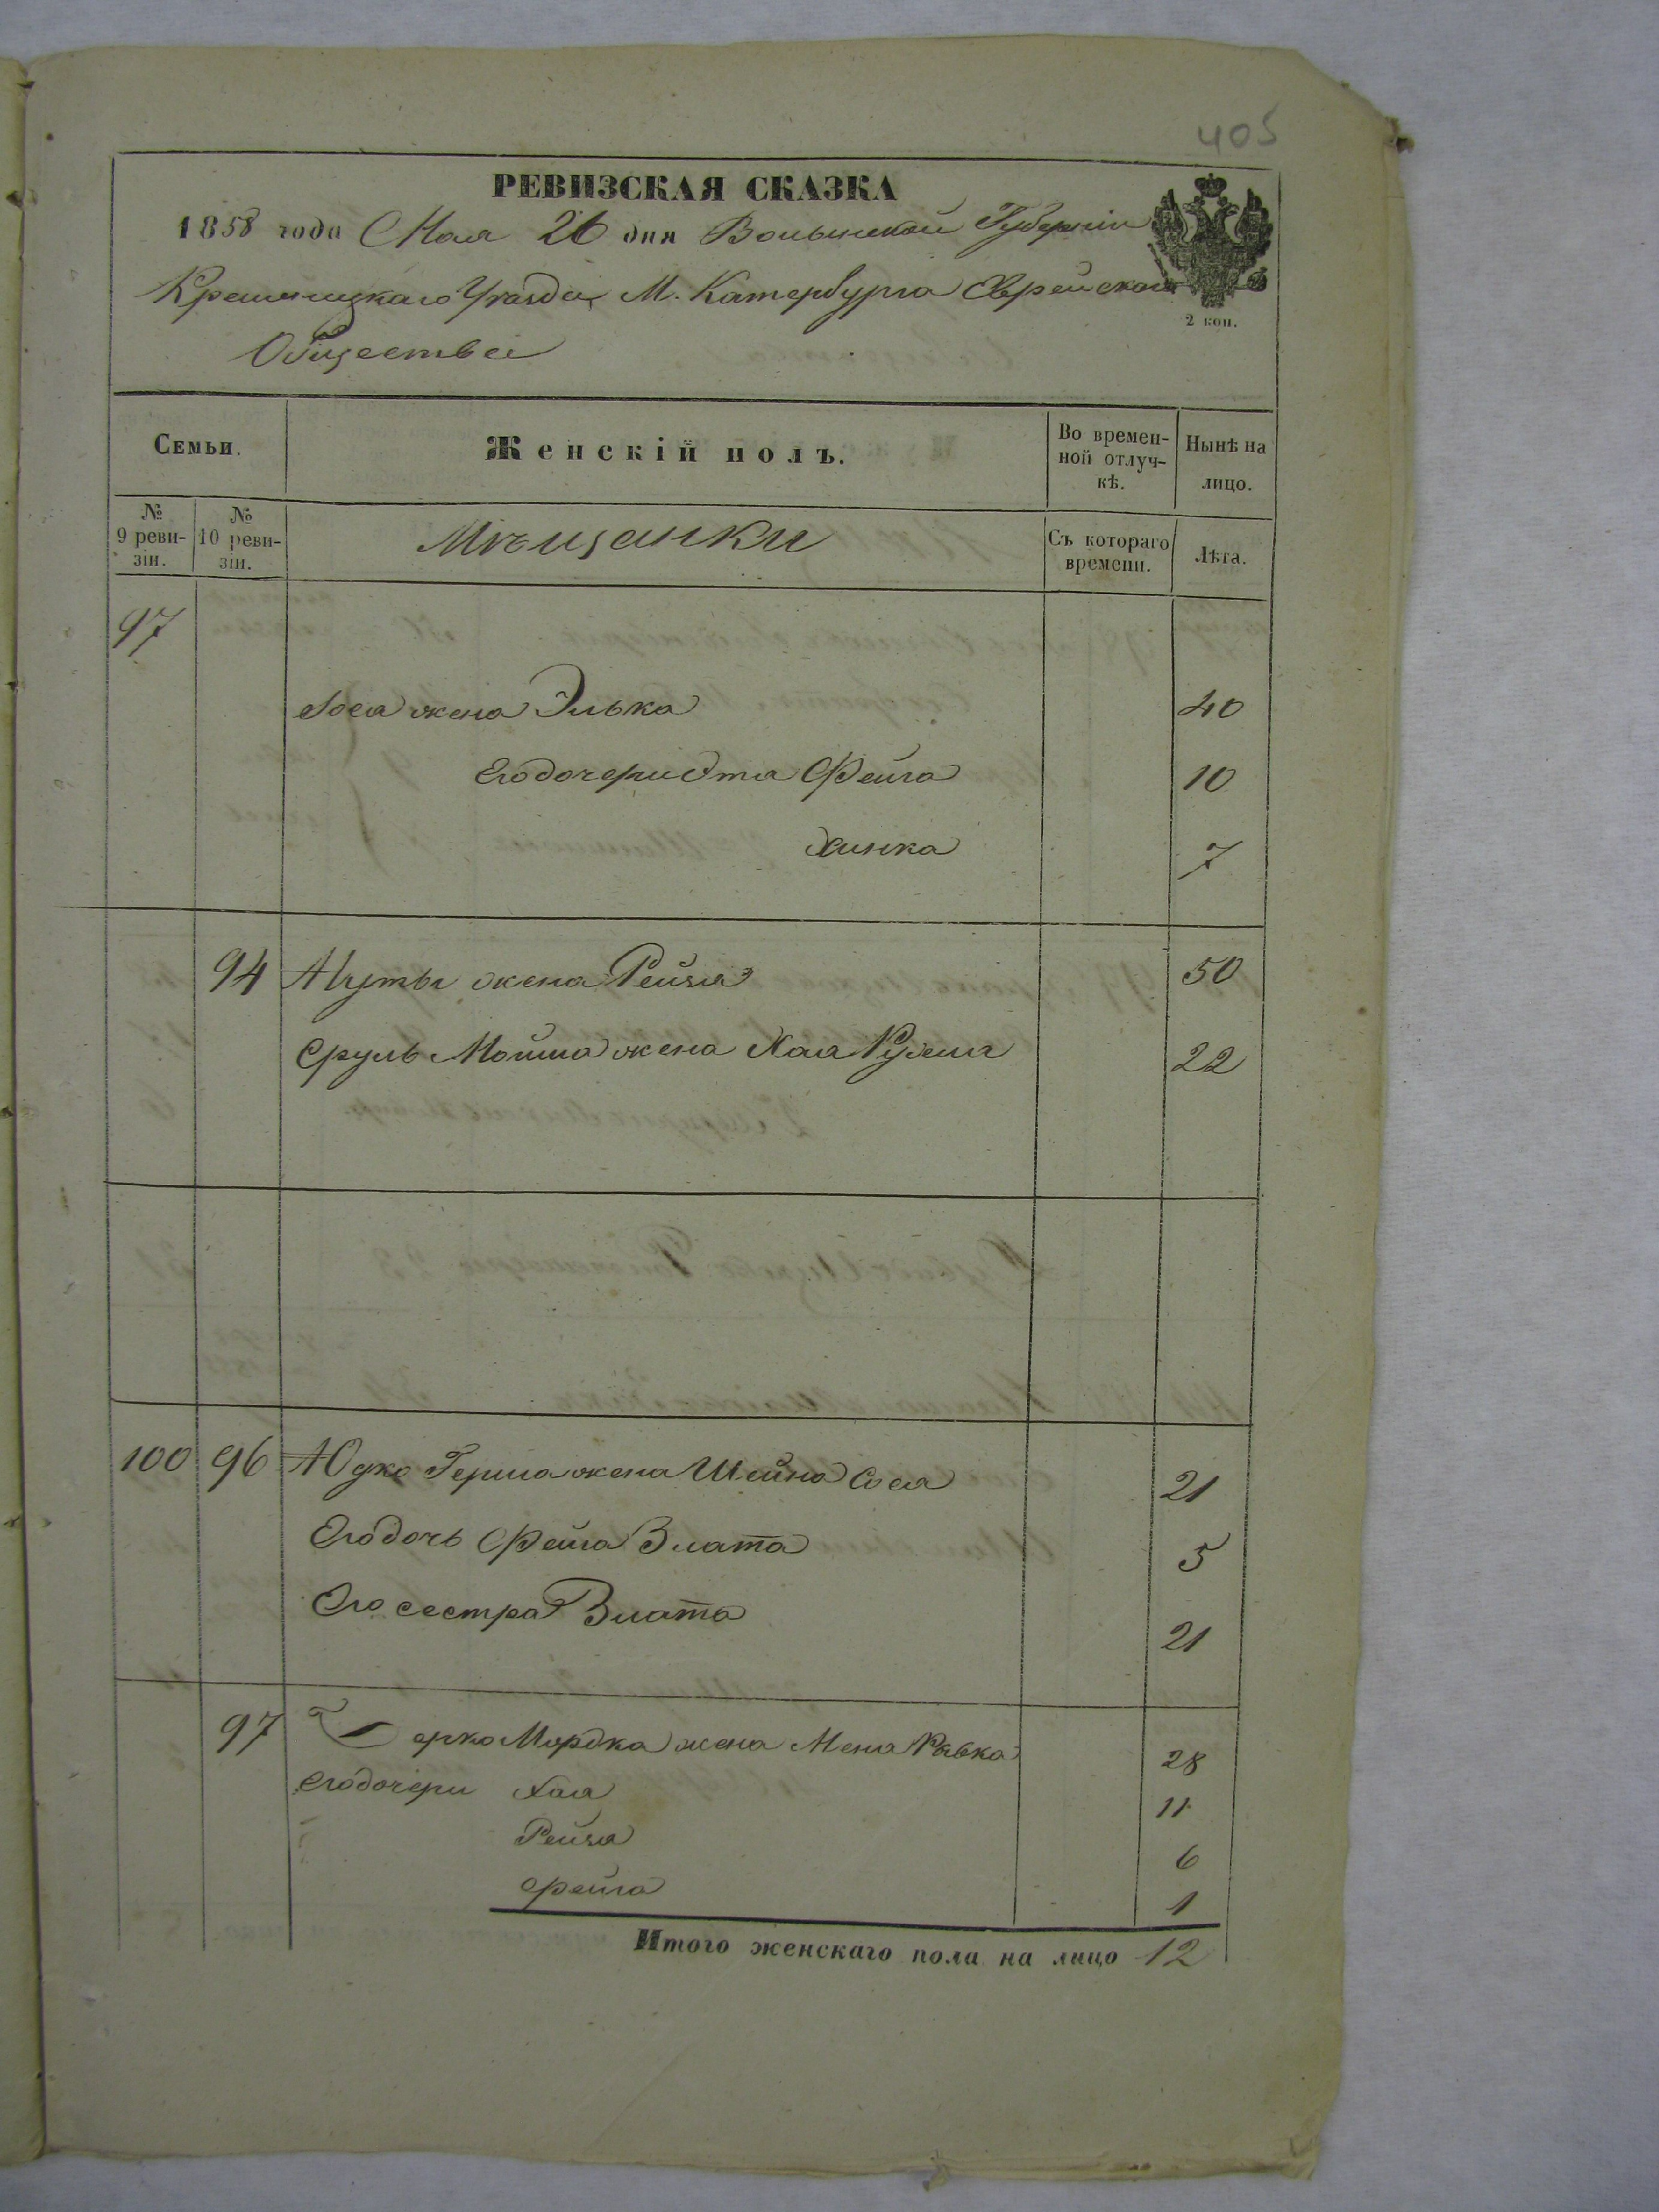 405
РЕВИЗСКАЯ СКАЗКА
1858 года Мая 26 дня Волынской Губерніи
Кременецкаго Уѣзда М. Катербурга Еврейскаго
2 коп.
Общества
Семьи.
Женскій полъ.
Во времен-
ной отлуч-
кѣ.
Нынѣ на
лицо.
№
9 реви-
зіи.
№
10 реви-
зіи.
Мѣщанки
Съ котораго
времени.
Лѣта.
97
жена Элька 40
Его дочери Фейга 10
Хинка 7
94 жена Рейзя 50
Сруль Мойша жена Хая 22
100 96 Юдко Герша жена Шейна Сося 21
Его дочь Фейга Злата 5
Его сестра Злата 21
97 Мордка жена Рывка 28
Его дочери Хая 11
Рейзя 6
Фейга 1
Итого женскаго пола на лицо 12